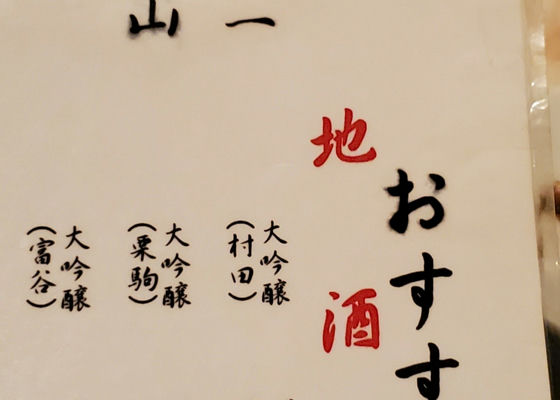 おすす
地酒
一
大吟醸
(村田)
山
大吟醸
(栗駒)
大吟醸
(富谷)